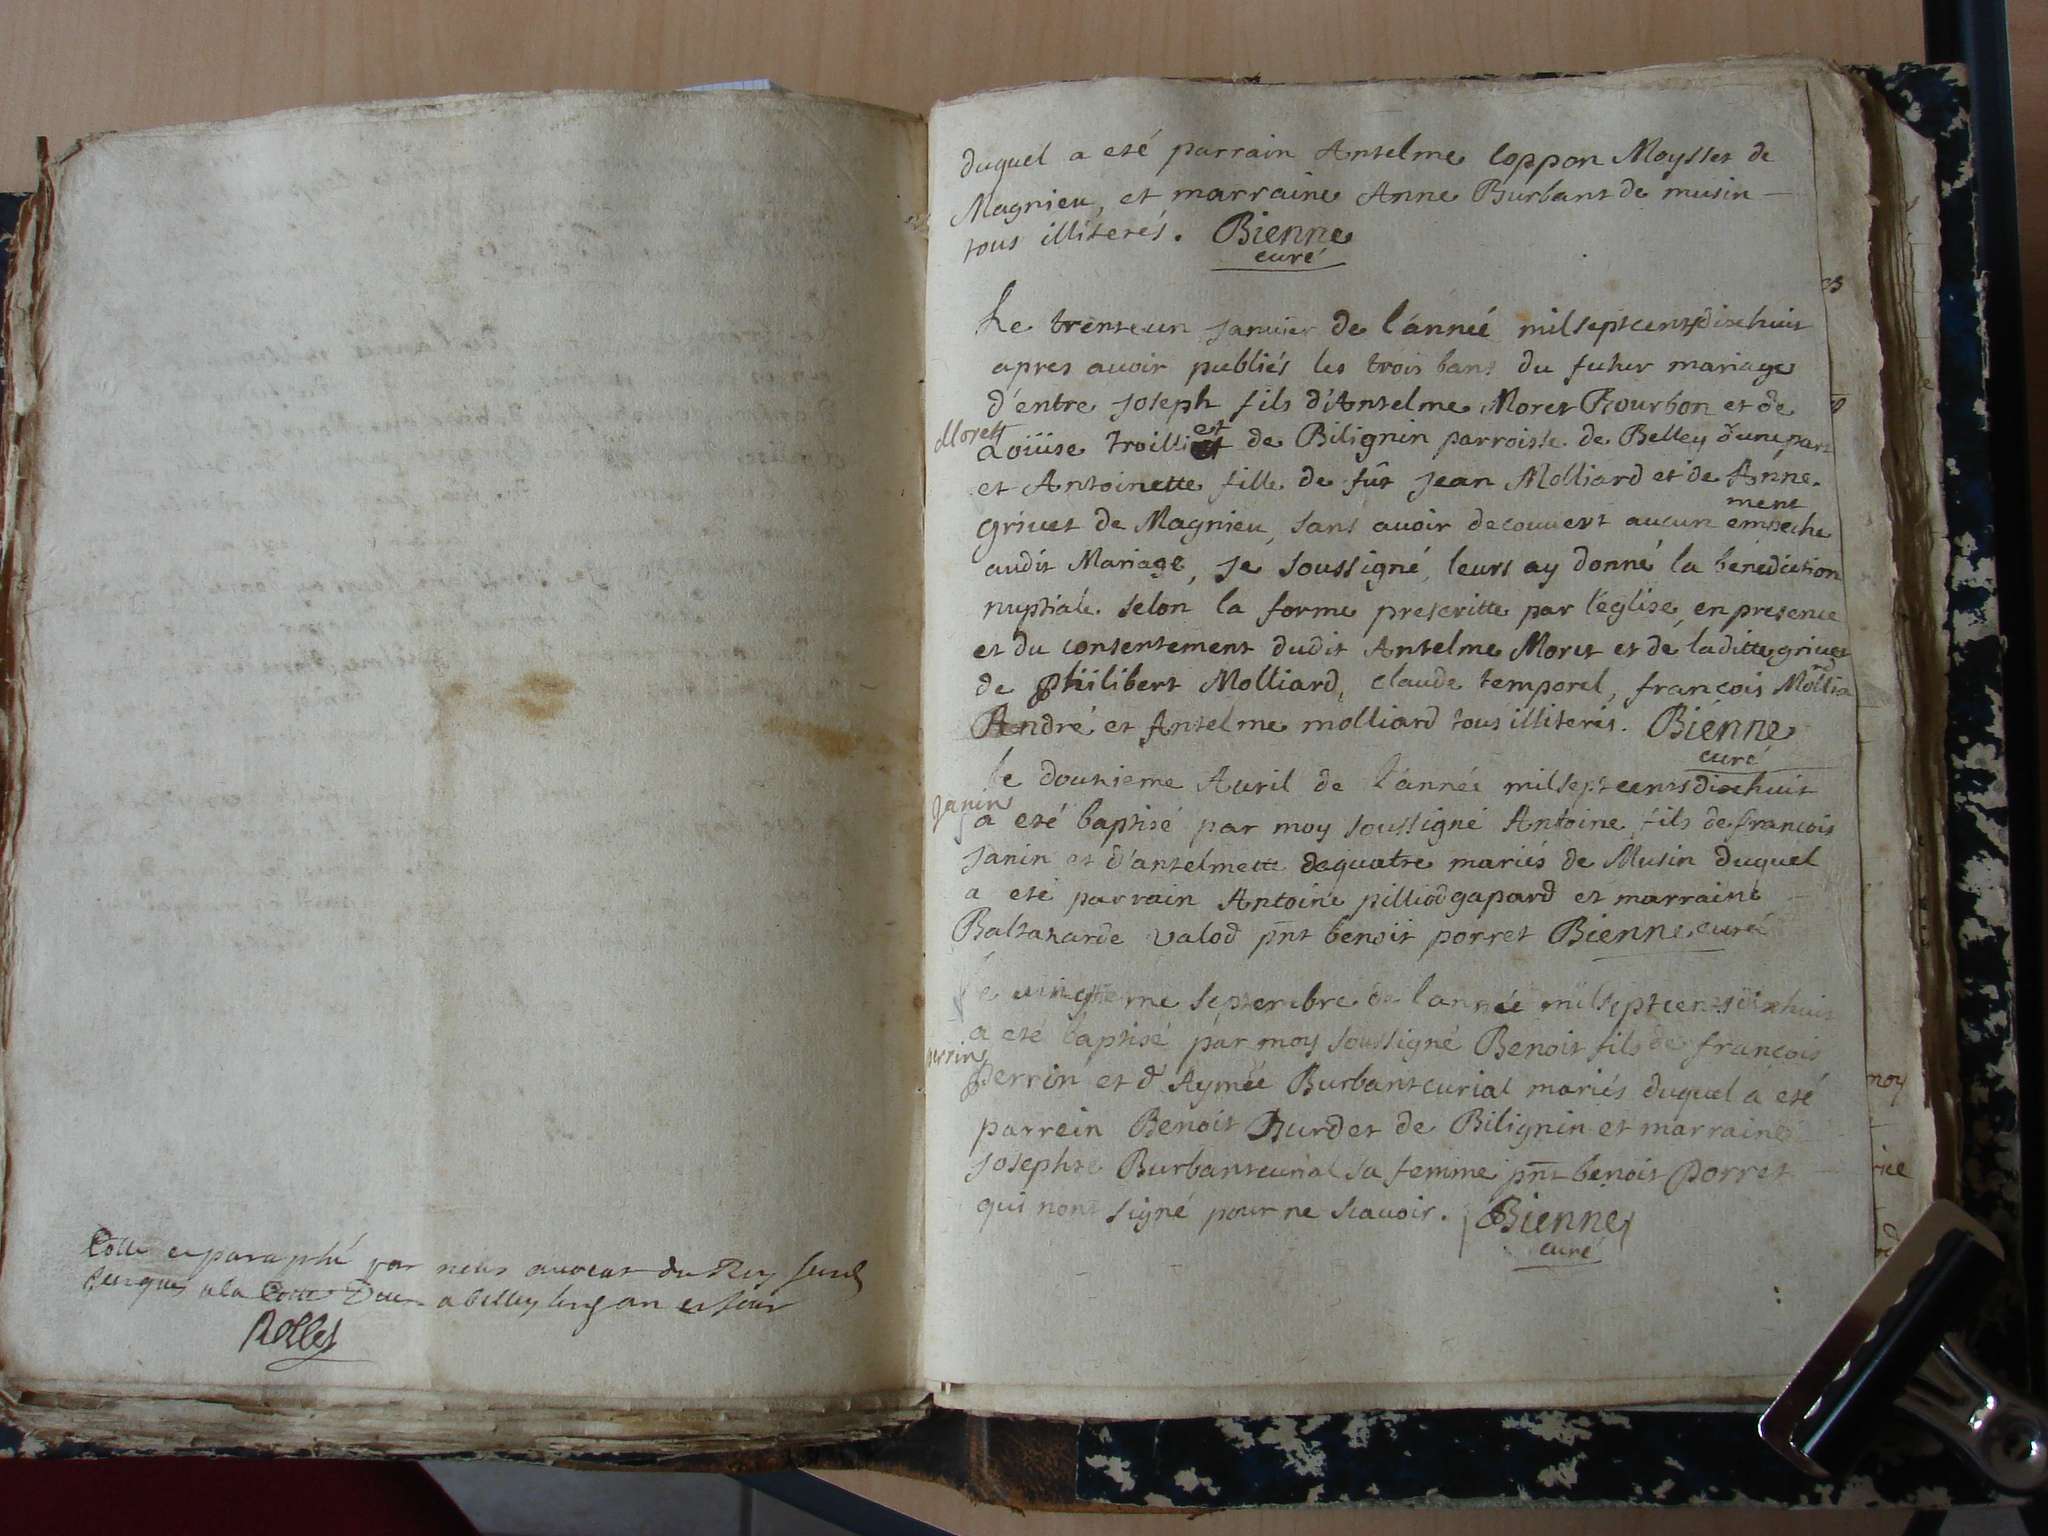 Cotté et paraphé par nous avocat du Roy
a belley an et jour
Rolles
duquel a eté parrain Antelme Coppon Moysset de
Magnieu, et marraine Anne Burbant de musin
tous illiterés. Bienne
curé
Le trenteun janvier de l'année milseptcentsdixhuit
apres avoir publiés les trois bans du futur mariage
d'entre joseph fils d'Antelme Moret Bourbon et de
Morett
Loüise Troilliet de Bilignin parroisse de Belley d'une part
et Antoinette fille de fût jean Molliard et de Anne
ment
grivet de Magnieu, sans avoir decouvert aucun empeche
audit Mariage, je soussigné, leurs ay donné la benediction
nuptiale selon la forme prescritte par l'eglise, en presence
et du consentement dudit Antelme Moret et de laditte grivet
de philibert Molliard, claude temporel, francois Mollia
rd
André et Antelme molliard tous illiterés. Bienne
curé
Le douzieme Avril de l'année milseptcentsdixhuit
Janin
a eté baptisé par moy soussigné Antoine fils de francois
Janin et d'antelmette dequatre mariés de Musin duquel
a eté parrain Antoine pilliodgapard et marraine
Baltazarde valod pnt benoit porret Bienne curé
Le vingtieme septembre de l'année milseptcentsdixhuit
a eté baptisé par moy soussigné Benoit fils de francois
perrin
perrin et d'Aymée Burbantcurial mariés duquel a eté
parrein Benoit Burdet de Bilignin et marraine
josephte Burbantcurial sa femme pnt benoit porret
qui nont signé pour ne scavoir. Bienne
curé
noy
rice